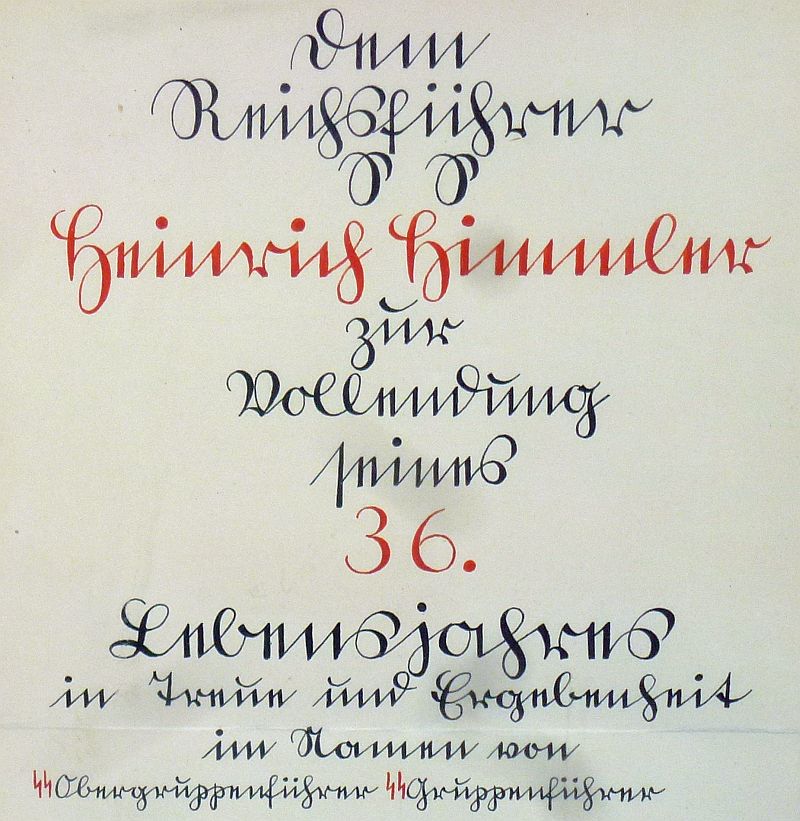 Dem
Reichsführer
SS
Heinrich Himmler
zur
Vollendung
seines
36.
Lebensjahres
in Treue und Ergebenheit
im Namen von
SS Obergruppenführer SS Gruppenführer